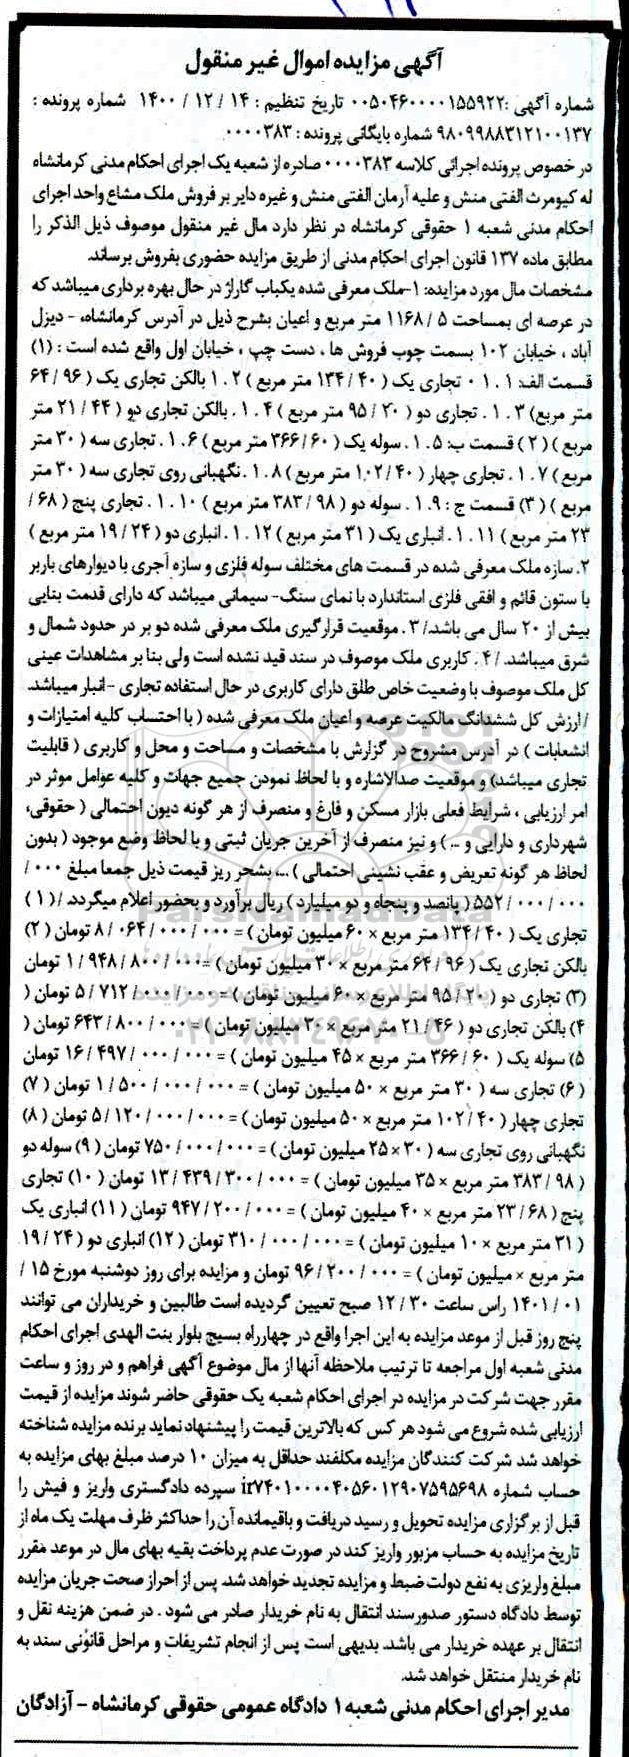 آگهی مزایده اموال غیر منقول
شماره آگهی :۰۰۵۰۴۶۰۰۰۰۱۵۵۹۲۲ تاریخ تنظیم : ۱۴ / ۱۲ / ۱۴۰۰ شماره پرونده :
۹۸۰۹۹۸۸۳۱۲۱۰۰۱۳۷ شماره بایگانی پرونده : ۰۰۰۰۳۸۳
در خصوص پرونده اجرائی کلاسه ۰۰۰۰۳۸۳ صادره از شعبه یک اجرای احکام مدنی کرمانشاه
له کیومرث الفتی منش و علیه آرمان الفتی منش و غیره دایر بر فروش ملک مشاع واحد اجرای
احکام مدنی شعبه ۱ حقوقی کرمانشاه در نظر دارد مال غیر منقول موصوف ذیل الذکر را
مطابق ماده ۱۳۷ قانون اجرای احکام مدنی از طریق مزایده حضوری بفروش برساند.
مشخصات مال مورد مزایده: ۱-ملک معرفی شده یکباب گاراژ در حال بهره برداری میباشد که
در عرصه ای بمساحت ۵ / ۱۱۶۸ متر مربع و اعیان بشرح ذیل در آدرس کرمانشاه، - دیزل
آباد ، خیابان ۱۰۲ بسمت چوب فروش ها ، دست چپ ، خیابان اول واقع شده است : (۱)
قسمت الف: ۱ . ۱ ۰ تجاری یک ( ۴۰ / ۱۳۴ متر مربع ) ۲ . ۱ بالکن تجاری یک ( ۹۶ / ۶۴
متر مربع) ۳ . ۱ . تجاری دو ( ۲۰ / ۹۵ متر مربع ) ۴ . ۱ . بالکن تجاری دو ( ۴۴ / ۲۱ متر
مربع ) ( ۲ ) قسمت ب: ۵ . ۱ . سوله یک ( ۶۰ / ۳۶۶ متر مربع ) ۶ . ۱ . تجاری سه ( ۳۰ متر
مربع ) ۷ . ۱ . تجاری چهار ( ۴۰ / ۱۰۲ متر مربع ) ۸ . ۱ .نگهبانی روی تجاری سه ( ۳۰ متر
مربع ) ( ۳) قسمت ج : ۹ . ۱ . سوله دو ( ۹۸ / ۳۸۳ متر مربع ) ۱۰ . ۱ . تجاری پنج ( ۶۸ /
۲۳ متر مربع ) ۱۱ . ۱ . انباری یک ( ۳۱ متر مربع ) ۱۲ . ۱ . انباری دو ( ۲۴ / ۱۹ متر مربع )
۲. سازه ملک معرفی شده در قسمت های مختلف سوله فلزی و سازه آجری با دیوارهای باربر
با ستون قائم و افقی فلزی استاندارد با نمای سنگ- سیمانی میباشد که دارای قدمت بنایی
بیش از ۲۰ سال می باشد./ ۳ . موقعیت قرارگیری ملک معرفی شده دو بر در حدود شمال و
شرق میباشد. / ۴ . کاربری ملک موصوف در سند قید نشده است ولی بنا بر مشاهدات عینی
کل ملک موصوف با وضعیت خاص طلق دارای کاربری در حال استفاده تجاری - انبار میباشد.
/ ارزش کل ششدانگ مالکیت عرصه و اعیان ملک معرفی شده ( با احتساب کلیه امتیازات و
انشعابات ) در آدرس مشروح در گزارش با مشخصات و مساحت و محل و کاربری ( قابلیت
تجاری میباشد) و موقعیت صدالاشاره و با لحاظ نمودن جمیع جهات و کلیه عوامل موثر در
امر ارزیابی ، شرایط فعلی بازار مسکن و فارغ و منصرف از هر گونه دیون احتمالی ( حقوقی،
شهرداری و دارایی و ... ) و نیز منصرف از آخرین جریان ثبتی و با لحاظ وضع موجود ( بدون
لحاظ هر گونه تعریض و عقب نشینی احتمالی ) ... بشحر ریز قیمت ذیل جمعا مبلغ ۰۰۰ /
۰۰۰ / ۰۰۰ / ۵۵۲ ( پانصد و پنجاه و دو میلیارد ) ریال برآورد و بحضور اعلام میگردد. / ( ۱ )
تجاری یک ( ۴۰ / ۱۳۴ متر مربع × ۶۰ میلیون تومان ) = ۰۰۰ / ۰۰۰ / ۰۶۴ / ۸ تومان ( ۲)
بالکن تجاری یک ( ۹۶ / ۶۴ متر مربع × ۳۰ میلیون تومان ) = ۰۰۰ / ۸۰۰ / ۹۴۸ / ۱ تومان
(۳) تجاری دو ( ۲۰ / ۹۵ متر مربع × ۶۰ میلیون تومان ) = ۰۰۰ / ۰۰۰ / ۷۱۲ / ۵ تومان (
۴) بالکن تجاری دو ( ۴۶ / ۲۱ متر مربع × ۳۰ میلیون تومان ) = ۰۰۰ / ۸۰۰ / ۶۴۳ تومان (
۵) سوله یک ( ۶۰ / ۳۶۶ متر مربع × ۴۵ میلیون تومان ) = ۰۰۰ / ۰۰۰ / ۴۹۷ / ۱۶ تومان
( ۶ ) تجاری سه ( ۳۰ متر مربع × ۵۰ میلیون تومان ) = ۰۰۰ / ۰۰۰ / ۵۰۰ / ۱ تومان ( ۷)
تجاری چهار ( ۴۰ / ۱۰۲ متر مربع × ۵۰ میلیون تومان ) = ۰۰۰ / ۰۰۰ / ۱۲۰ / ۵ تومان ( ۸)
نگهبانی روی تجاری سه ( ۳۰ × ۲۵ میلیون تومان ) = ۰۰۰ / ۰۰۰ / ۷۵۰ تومان ( ۹) سوله دو
( ۹۸ / ۳۸۳ متر مربع × ۳۵ میلیون تومان ) = ۰۰۰ / ۳۰۰ / ۴۳۹ / ۱۳ تومان ( ۱۰) تجاری
پنج ( ۶۸ / ۲۳ متر مربع × ۴۰ میلیون تومان ) = ۰۰۰ / ۲۰۰ / ۹۴۷ تومان ( ۱۱) انباری یک
( ۳۱ متر مربع × ۱۰ میلیون تومان ) = ۰۰۰ / ۰۰۰ / ۳۱۰ تومان ( ۱۲) انباری دو ( ۲۴ / ۱۹
متر مربع × میلیون تومان ) = ۰۰۰ / ۲۰۰ / ۹۶ تومان و مزایده برای روز دوشنبه مورخ ۱۵ /
۰۱ / ۱۴۰۱ راس ساعت ۳۰ / ۱۲ صبح تعیین گردیده است طالبین و خریداران می توانند
پنج روز قبل از موعد مزایده به این اجرا واقع در چهارراه بسیج بلوار بنت الهدی اجرای احکام
مدنی شعبه اول مراجعه تا ترتیب ملاحظه آنها از مال موضوع آگهی فراهم و در روز و ساعت
مقرر جهت شرکت در مزایده در اجرای احکام شعبه یک حقوقی حاضر شوند مزایده از قیمت
ارزیابی شده شروع می شود هر کس که بالاترین قیمت را پیشنهاد نماید برنده مزایده شناخته
خواهد شد شرکت کنندگان مزایده مکلفند حداقل به میزان ۱۰ درصد مبلغ بهای مزایده به
حساب شماره ir۷۴۰۱۰۰۰۰۴۰۵۶۰۱۲۹۰۷۵۹۵۶۹۸ سپرده دادگستری واریز و فیش را
قبل از برگزاری مزایده تحویل و رسید دریافت و باقیمانده آن را حداکثر ظرف مهلت یک ماه از
تاریخ مزایده به حساب مزبور واریز کند در صورت عدم پرداخت بقیه بهای مال در موعد مقرر
مبلغ واریزی به نفع دولت ضبط و مزایده تجدید خواهد شد. پس از احراز صحت جریان مزایده
توسط دادگاه دستور صدور سند انتقال به نام خریدار صادر می شود . در ضمن هزینه نقل و
انتقال بر عهده خریدار می باشد. بدیهی است پس از انجام تشریفات و مراحل قانونی سند به
نام خریدار منتقل خواهد شد.
مدیر اجرای احکام مدنی شعبه ۱ دادگاه عمومی حقوقی کرمانشاه - آزادگان
ParsNamadData
۰۲۱-۸۸۳۴۹۶۷۰-۵